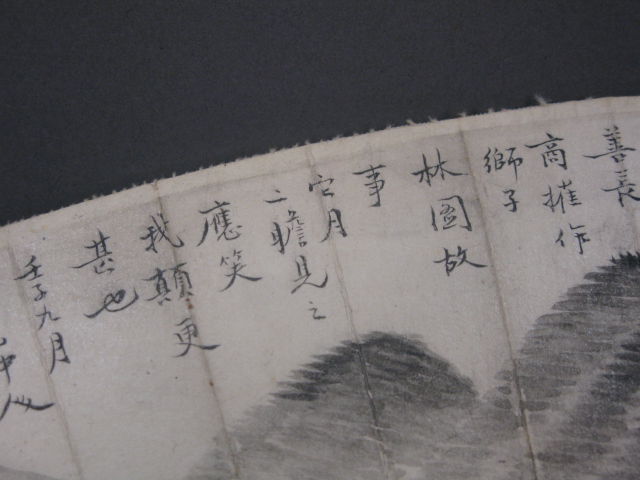 善長
商搉作
獅子
林圖故
事
它月
二瞻見之
應笑
我顛更
甚也
壬子九月